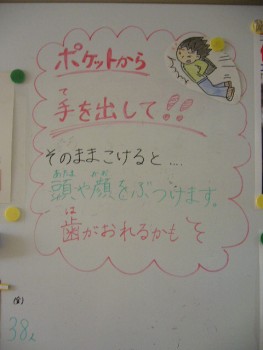 ポケットから
手を出して!!
そのままこけると…
頭や顔をぶつけます。
歯がおれるかも
(金)
38人